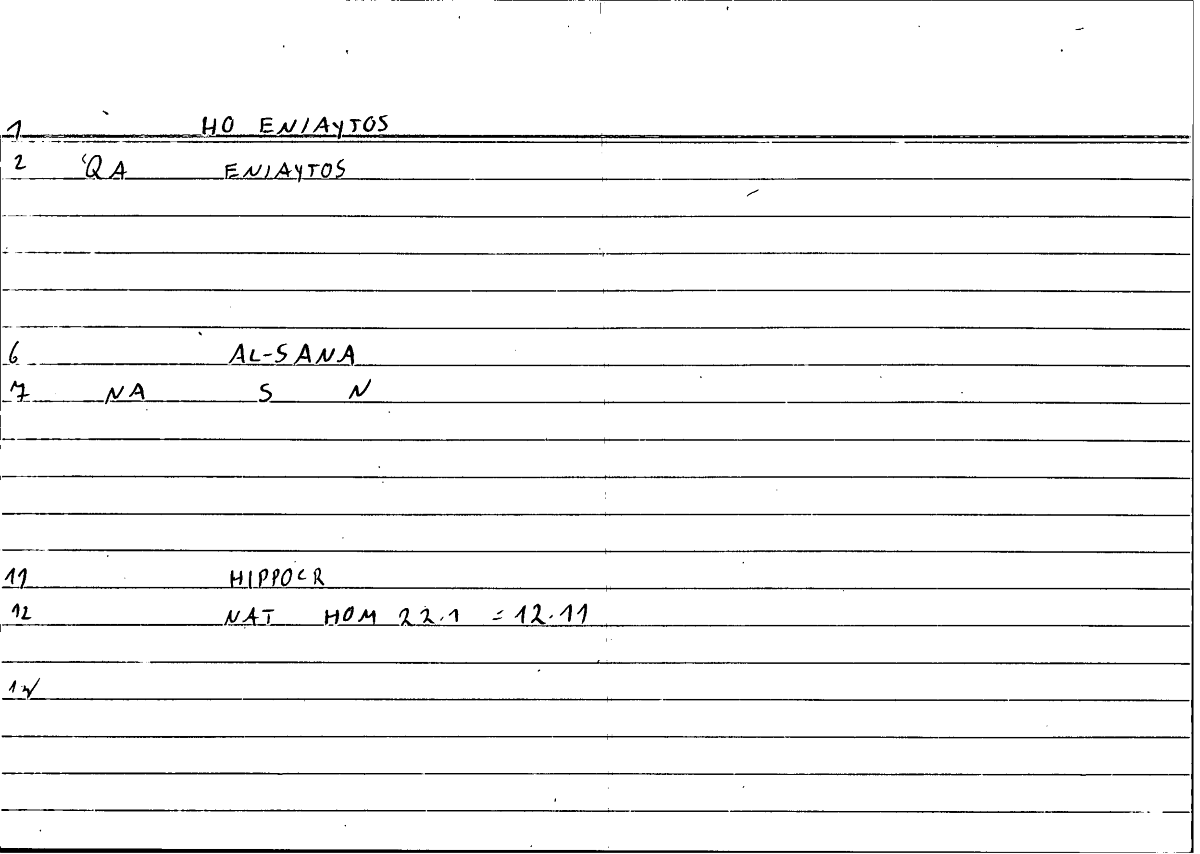 1 HO ENIAYTOS
2 QA ENIAYTOS
6 AL-SANA
7 NA S N
11 HIPPOCR
12 NAT HOM 22.1 = 12.11